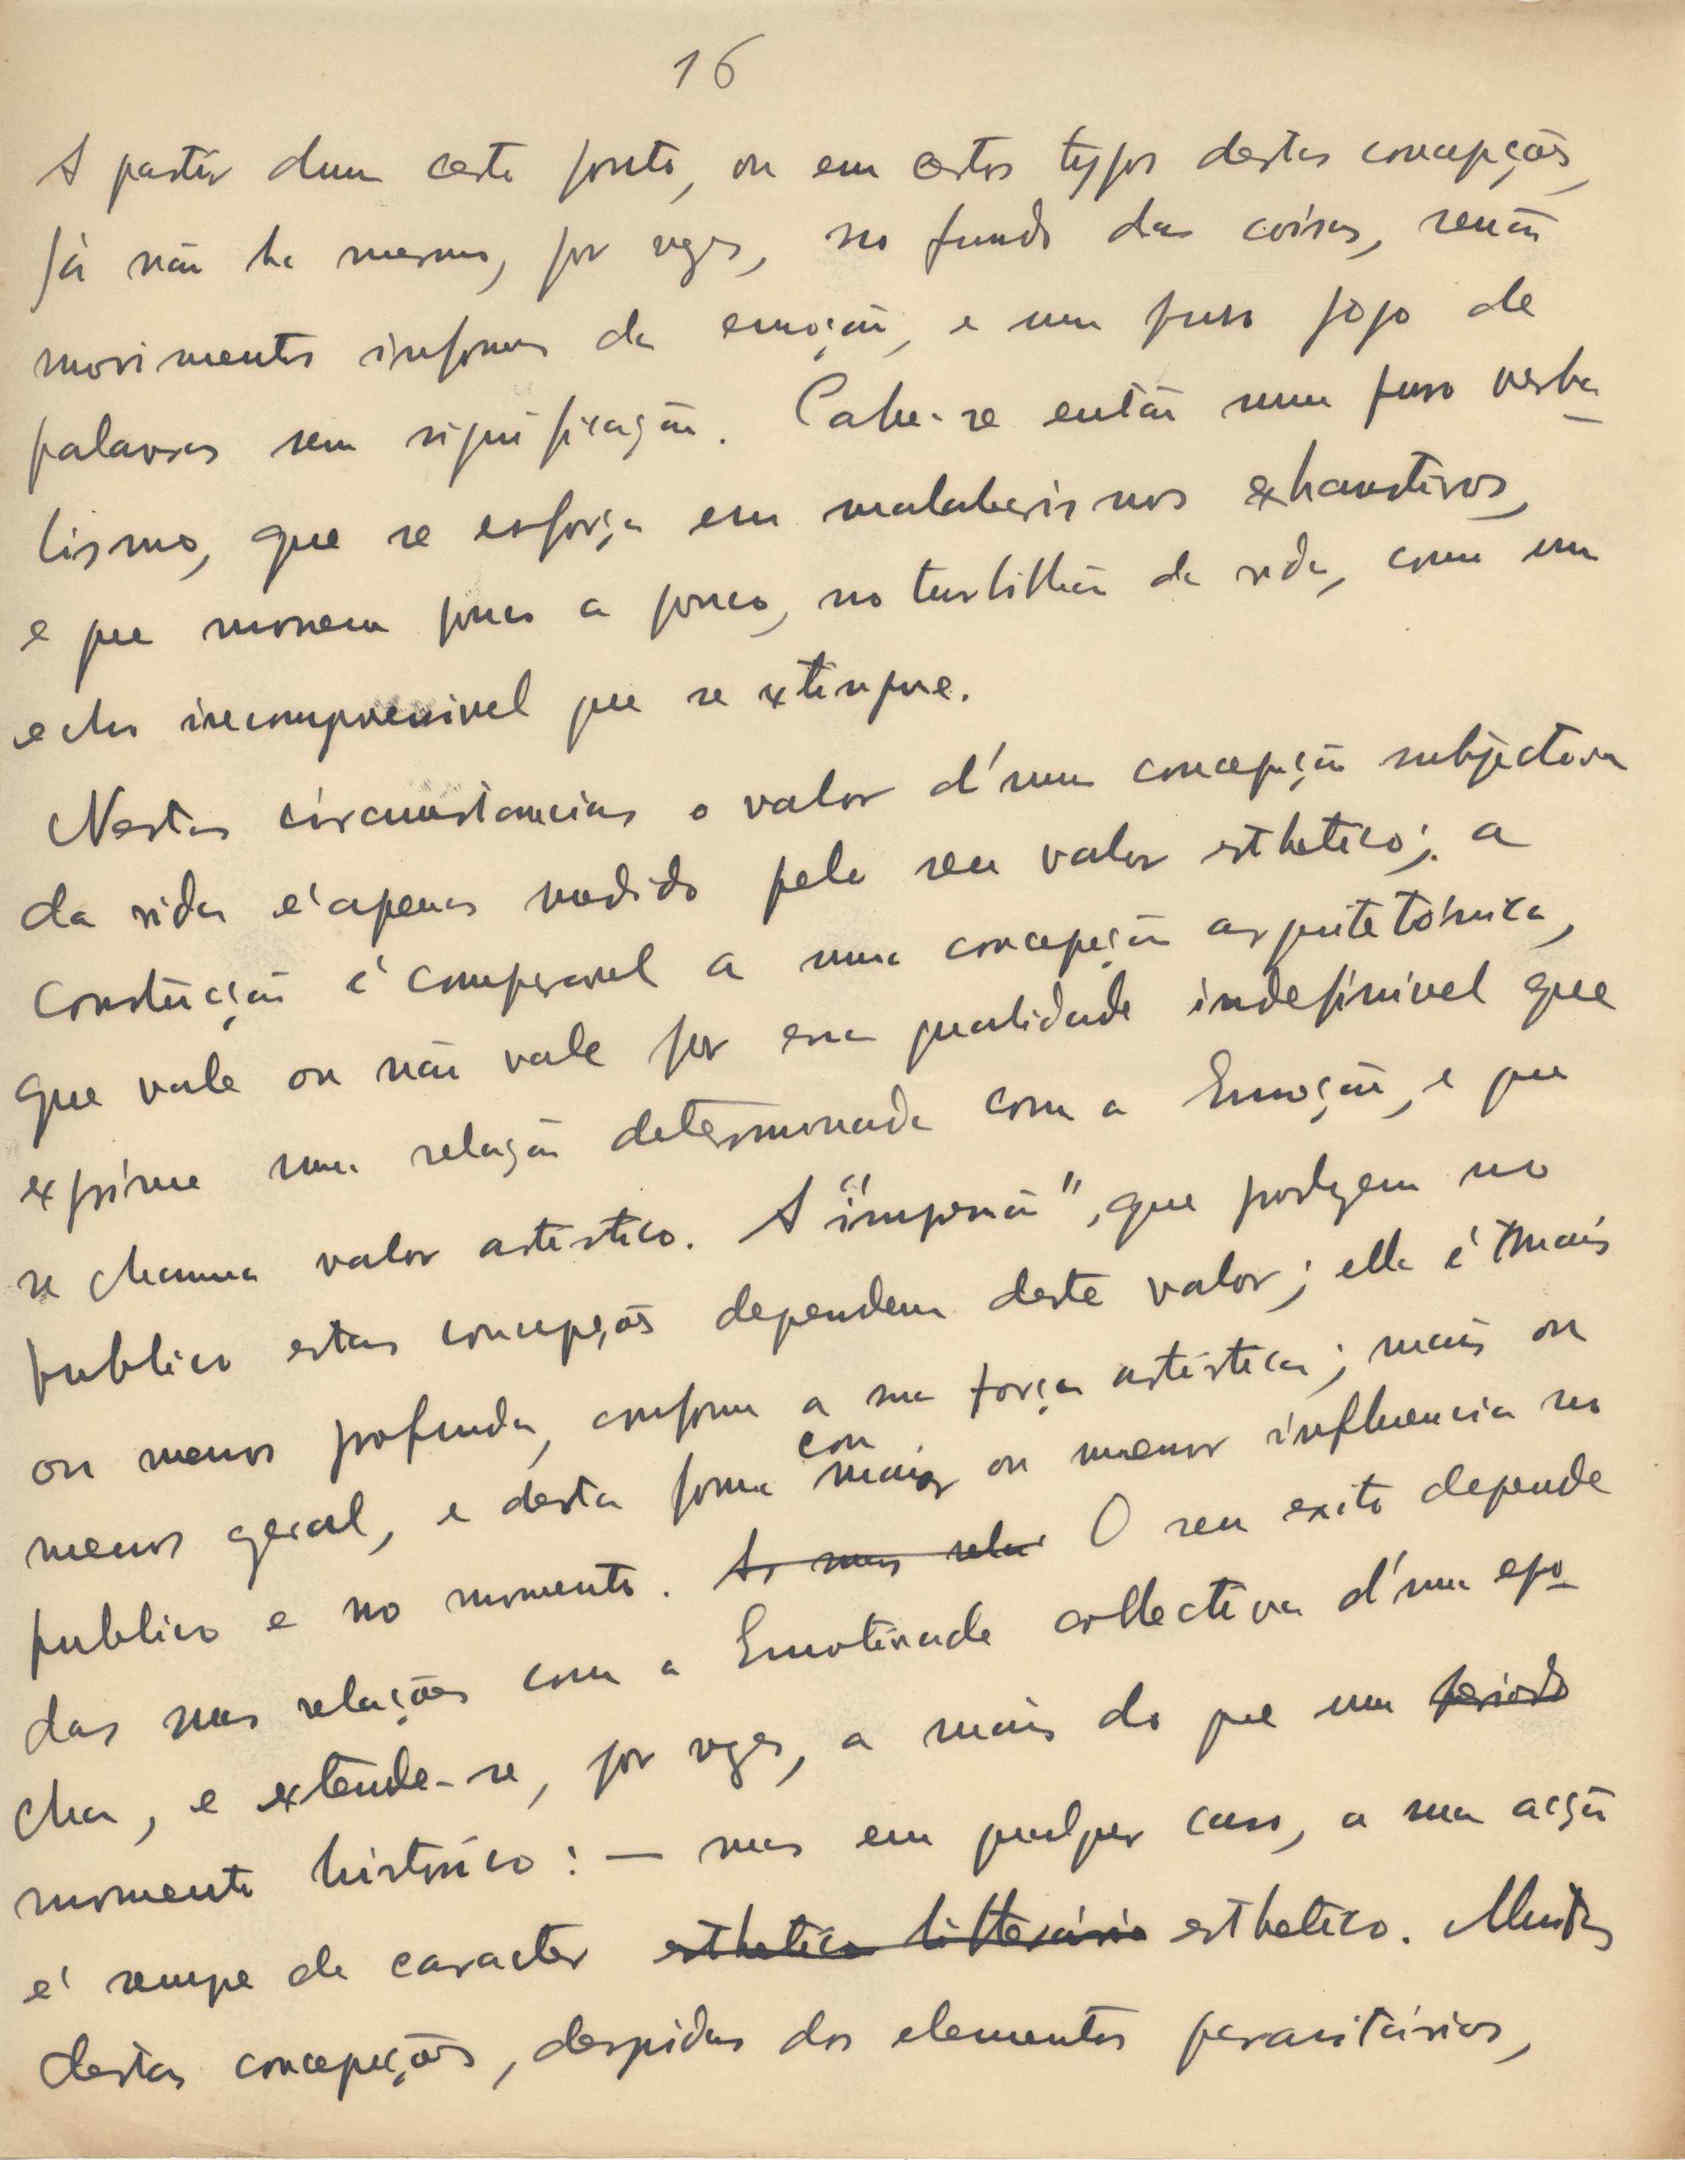 16
A partir dum certo ponto, ou em certos typos destas concepções,
já não ha mesmo, por vezes, no fundo das coisas, senão
movimentos informes da emoção, e um puro jogo de
palavras sem significação. Cahe-se então num puro verba-
lismo, que se esforça em malabarismos exhaustivos,
e que morrem pouco a pouco, no turbilhão da vida, como um
echo incomprensivel que se extingue.
Nestas circumstancias o valor d'uma concepção subjectiva
da vida é apenas medido pelo seu valor esthetico; a
construcção é comparavel a uma concepção arquitetónica,
que vale ou não vale por essa qualidade indefinivel que
exprime uma relação determinada com a Emoção, e que
se chama valor artistico. A "impressão", que produzem no
publico estas concepções dependem deste valor; ella é mais
ou menos profunda, conforme a sua força artistica; mais ou
menos geral, e desta forma com maior ou menor influencia no
publico e no momento. As suas rela O seu exito depende
das suas relações com a Emotividade collectiva d'uma epo-
cha, e extende-se, por vezes, a mais do que um periodo
momento histórico: — mas em qualquer caso, a sua acção
é sempre de caracter esthetico litterário esthetico. Muitas
destas concepções, despidas dos elementos parasitários,